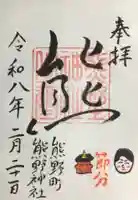 奉拝
節分
熊
熊野町
熊野神社
令和八年二月二十日